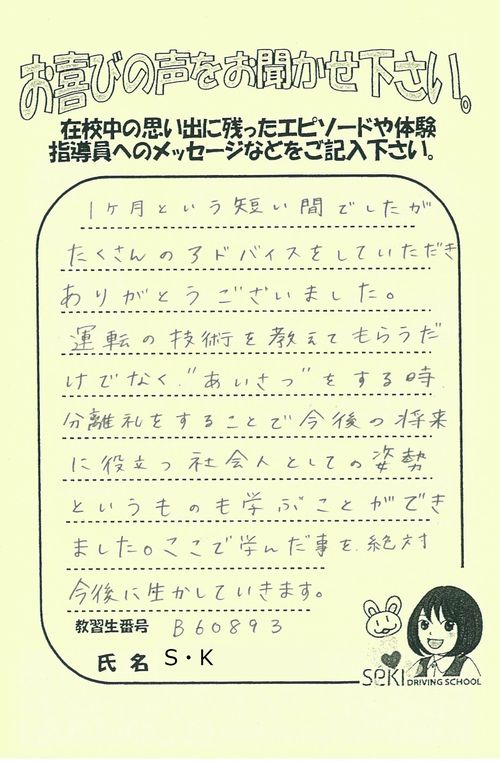 お喜びの声をお聞かせ下さい。
在校中の思い出に残ったエピソードや体験
指導員へのメッセージなどをご記入下さい。
1ヶ月という短い間でしたが
たくさんのアドバイスをしていただき
ありがとうございました。
運転の技術を教えてもらうだ
けでなく、"あいさつ"をする時
分離礼をすることで今後の将来
に役立つ社会人としての姿勢
というものも学ぶことができ
ました。ここで学んだ事を、絶対
今後に生かしていきます。
教習生番号 B60893
氏名 S・K
SEKI DRIVING SCHOOL